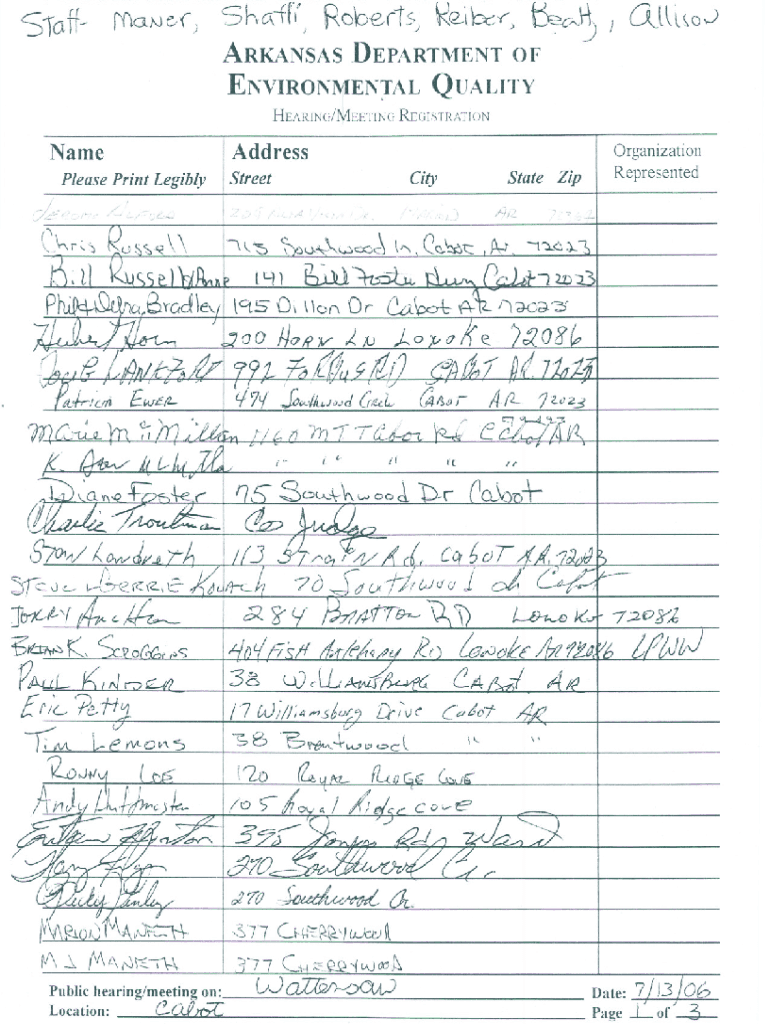 Staff- Maner, Shafii, Roberts, Keiber, Beaty, Allison
ARKANSAS DEPARTMENT OF
ENVIRONMENTAL QUALITY
HEARING/MEETING REGISTRATION
Name Address Organization
Please Print Legibly Street City State Zip Represented
AR
Chris Russell 715 Southwood ln, Cabot, Ar. 72023
Bill Russell 141 Bill Foster Hwy Cabot 72023
Bradley 195 Dillon Dr Cabot AR 72023
Hubert Horn 200 HORN LN LONOKE 72086
LANKFORD 992 CABOT AR. 72023
Patricia EWER 474 Southwood Circle CABOT AR 72023
Marie McMillan 1160 MT Tabor Rd Cabot AR
K. " " " " "
Diane Foster 75 Southwood Dr Cabot
Charlie Troutman Co Judge
Stan Landreth 113 STRAIN Rd. CABOT AR. 72023
STEVE GERRIE KOVACH 70 Southwood Cabot
284 BRATTON RD LONOKE 72086
BRIAN K. SCROGGINS 404 FISH Hatchery RD LONOKE AR 72086 LPWW
PAUL KINDER 38 WILLIAMSBURG CABOT AR
Eric Petty 17 Williamsburg Drive Cabot AR
Tim Lemons 38 Brentwood " "
RONNY LOE 120 ROYAL RIDGE COVE
Andy 105 Royal Ridge cove
395 Rd Ward
270 Southwood Cr.
270 Southwood Cr.
MARION MANETH 377 CHERRYWOOD
M J MANETH 377 CHERRYWOOD
Public hearing/meeting on: Watterson Date: 7/13/06
Location: Cabot Page 1 of 3